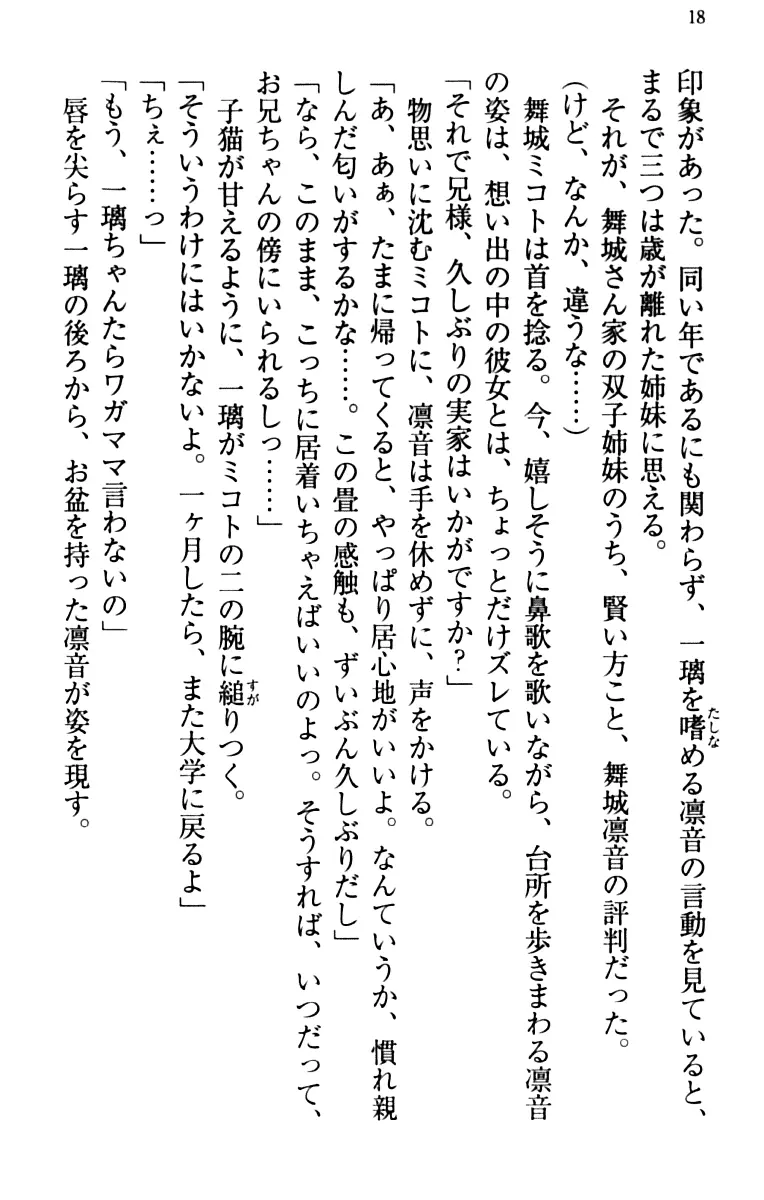 18
印象があった。同い年であるにも関わらず、一璃を嗜める凛音の言動を見ていると、
まるで三つは歳が離れた姉妹に思える。
それが、舞城さん家の双子姉妹のうち、賢い方こと、舞城凛音の評判だった。
(けど、なんか、違うな……)
舞城ミコトは首を捻る。今、嬉しそうに鼻歌を歌いながら、台所を歩きまわる凛音
の姿は、想い出の中の彼女とは、ちょっとだけズレている。
「それで兄様、久しぶりの実家はいかがですか?」
物思いに沈むミコトに、凛音は手を休めずに、声をかける。
「あ、あぁ、たまに帰ってくると、やっぱり居心地がいいよ。なんていうか、慣れ親
しんだ匂いがするかな……。この畳の感触も、ずいぶん久しぶりだし」
「なら、このまま、こっちに居着いちゃえばいいのよっ。そうすれば、いつだって、
お兄ちゃんの傍にいられるしっ……」
子猫が甘えるように、一璃がミコトの二の腕に縋りつく。
「そういうわけにはいかないよ。一ヶ月したら、また大学に戻るよ」
「ちぇ……っ」
「もう、一璃ちゃんたらワガママ言わないの」
唇を尖らす一璃の後ろから、お盆を持った凛音が姿を現す。